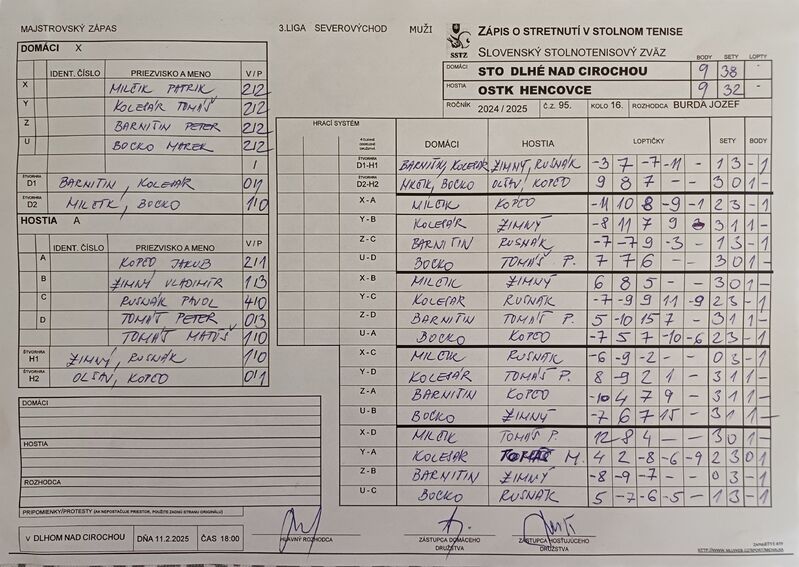 MAJSTROVSKÝ ZÁPAS 3.LIGA SEVEROVÝCHOD MUŽI
ZÁPIS O STRETNUTÍ V STOLNOM TENISE
SSTZ SLOVENSKÝ STOLNOTENISOVÝ ZVÄZ
BODY SETY LOPTY
DOMÁCI STO DLHÉ NAD CIROCHOU 9 38 -
HOSTIA OSTK HENCOVCE 9 32 -
ROČNÍK 2024 / 2025 Č.Z. 95. KOLO 16. ROZHODCA BURDA JOZEF
DOMÁCI X
IDENT. ČÍSLO PRIEZVISKO A MENO V / P
X MILČÍK PATRIK 2/2
Y KOLESÁR TOMÁŠ 2/2
Z BARNITIN PETER 2/2
U BOCKO MAREK 2/2
/
ŠTVORHRA D1 BARNITIN, KOLESÁR 0/1
D2 MILČÍK, BOCKO 1/0
HOSTIA A
IDENT. ČÍSLO PRIEZVISKO A MENO V/P
A KOPČO JAKUB 2/1
B ZIMNÝ VLADIMÍR 1/3
C RUSNÁK PAVOL 4/0
D TOMÁŠ PETER 0/3
TOMÁŠ MATÚŠ 1/0
ŠTVORHRA H1 ZIMNÝ, RUSNÁK 1/0
ŠTVORHRA H2 OLŠAV, KOPČO 0/1
DOMÁCI
HOSTIA
ROZHODCA
PRIPOMIENKY/PROTESTY (AK NEPOSTAČUJE PRIESTOR, POUŽITE ZADNÚ STRANU ORIGINÁLU)
V DLHOM NAD CIROCHOU DŇA 11.2.2025 ČAS 18:00
HRACÍ SYSTÉM
DOMÁCI HOSTIA LOPTIČKY SETY BODY
ŠTVORHRA D1-H1 BARNITIN, KOLESÁR ZIMNÝ, RUSNÁK -3 7 -7 -11 - 1 3 - 1
ŠTVORHRA D2-H2 MILČÍK, BOCKO OLŠAV, KOPČO 9 8 7 - - 3 0 1 -
X - A MILČÍK KOPČO -11 10 8 -9 -1 2 3 - 1
Y - B KOLESÁR ZIMNÝ -8 11 7 9 3 1 1 -
Z - C BARNITIN RUSNÁK -7 -7 9 -3 - 1 3 - 1
U - D BOCKO TOMÁŠ P. 7 7 6 - - 3 0 1 -
X - B MILČÍK ZIMNÝ 6 8 5 - - 3 0 1 -
Y - C KOLESÁR RUSNÁK -7 -9 9 11 -9 2 3 - 1
Z - D BARNITIN TOMÁŠ P. 5 -10 15 7 - 3 1 1 -
U - A BOCKO KOPČO -7 5 7 -10 -6 2 3 - 1
X - C MILČÍK RUSNÁK -6 -9 -2 - - 0 3 - 1
Y - D KOLESÁR TOMÁŠ P. 8 -9 2 1 - 3 1 1 -
Z - A BARNITIN KOPČO -10 4 7 9 - 3 1 1 -
U - B BOCKO ZIMNÝ -7 6 7 15 - 3 1 1 -
X - D MILČÍK TOMÁŠ P. 12 8 4 - - 3 0 1 -
Y - A KOLESÁR TOMÁŠ M. 4 2 -8 -6 -9 2 3 0 1
Z - B BARNITIN ZIMNÝ -8 -9 -7 - - 0 3 - 1
U - C BOCKO RUSNÁK 5 -7 -6 -5 - 1 3 - 1
HLAVNÝ ROZHODCA
ZÁSTUPCA DOMÁCEHO DRUŽSTVA
ZÁSTUPCA HOSŤUJÚCEHO DRUŽSTVA